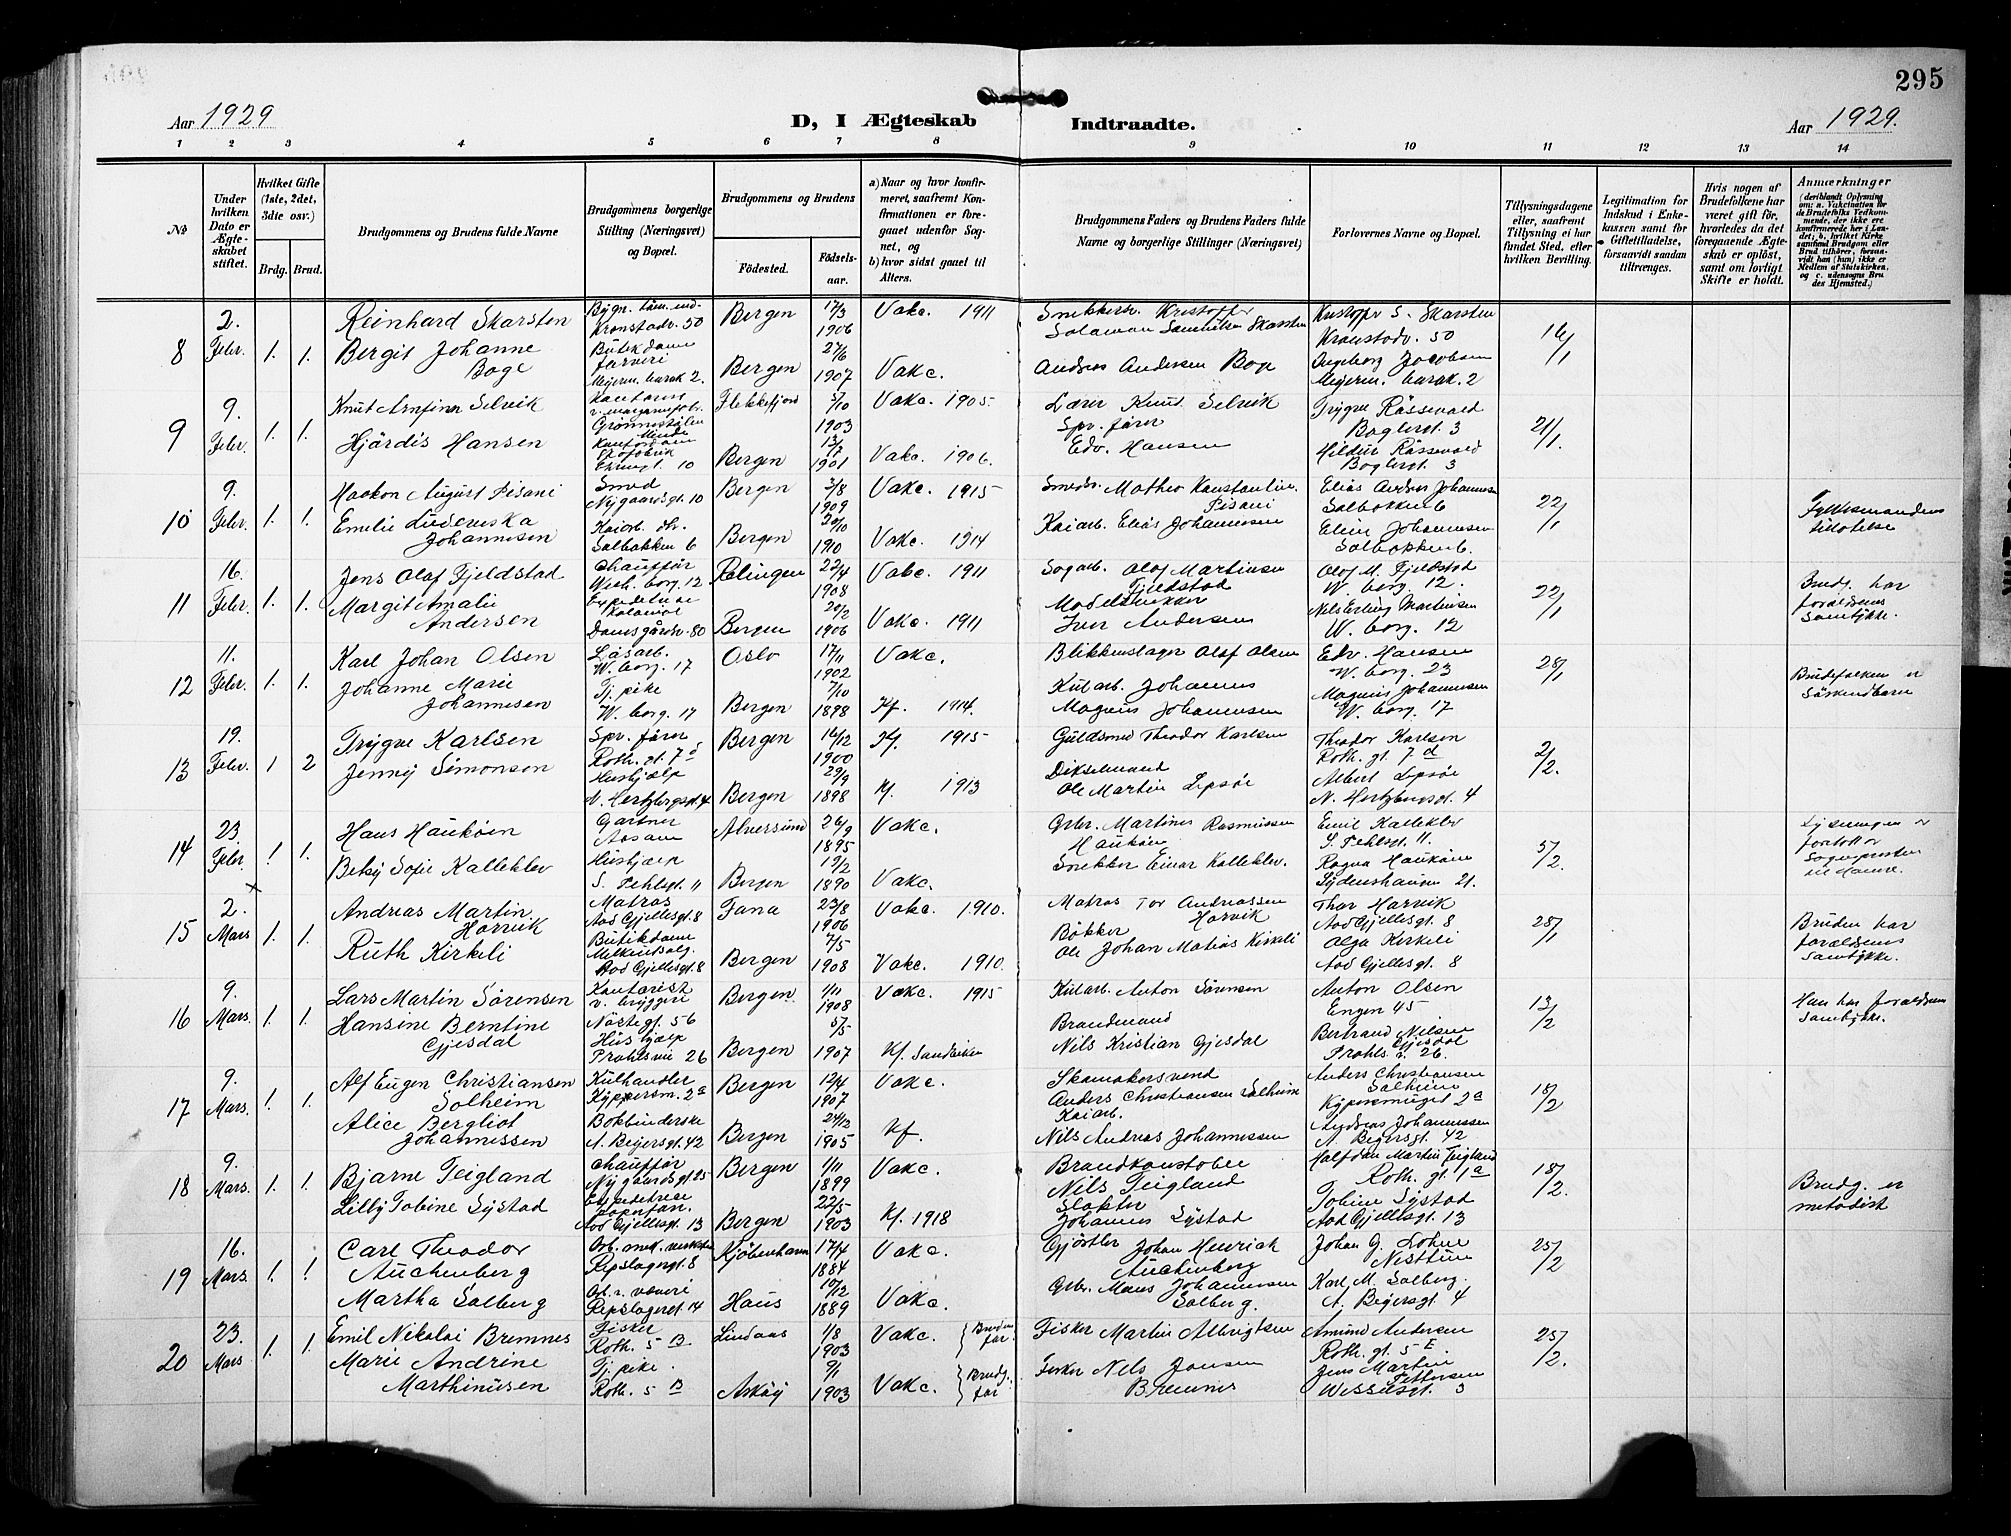 295
Aar 1929
D, I Ægteskab Indtraadte.
Aar 1929.
1 2 3 4 5 6 7 8 9 10 11 12 13 14
No
Under hvilken Dato er Ægteskabet stiftet.
Hvilket Gifte (1ste, 2det, 3die osv.)
Brdg. Brud.
Brudgommens og Brudens fulde Navne
Brudgommens borgerlige Stilling (Næringsvei) og Bopæl.
Brudgommens og Brudens
Fødested.
Fødselsaar.
a) Naar og hvor konfirmeret, saafremt Konfirmationen er foregaaet udenfor Sognet, og
b) hvor sidst gaaet til Alters.
Brudgommens Faders og Brudens Faders fulde Navne og borgerlige Stillinger (Næringsvei)
Forlovernes Navne og Bopæl.
Tillysningsdagene eller, saafremt Tillysning ei har fundet Sted, efter hvilken Bevilling.
Legitimation for Indskud i Enkekassen samt for Giftetilladelse, forsaavidt saadan tiltrænges.
Hvis nogen af Brudefolkene har været gift før, hvorledes da det foregaaende Ægteskab er opløst, samt om lovligt Skifte er holdt.
Anmærkninger
8 2. Febr. 1. 1. Reinhard Skarsten Kronstadv. 50 Bergen 17/3 1906 Vakc. 1911 Snekkersv. Kristoffer Salamon Samuelsen Skarsten Kristoffer S. Skarsten Kronstadv. 50 16/1
Bergit Johanne Boge Butikdame farveri Meierm. barak 2. Bergen 27/6 1907 Vakc. Andreas Andersen Boge Ingeborg Jacobsen Meierm. barak. 2
9 9. Febr. 1. 1. Knut Arnfinn Selvik Flekkefjord 5/10 1903 Vakc. 1905. Lærer Knut Selvik Trygve Råssevold Boglerst. 3 21/1
Hjördis Hansen Bergen 1901 Vakc. 1906. Spv. fører Edv. Hansen Hildur Råssevold Boglerst. 3
10 9. Febr. 1. 1. Haakon August Pisani Smed Nygaardsgt. 10 Bergen 3/8 1909 Vakc. 1915 Smedsv. Matheo Konstantin Pisani Elias Andreas Johannesen Solbakken 6 22/1 Fylkesmandens tilladelse
Emelie Ludeviska Johannesen Solbakken 6 Bergen 20/10 1910 Vakc. 1914 Kaiarb. Elias Johannesen Johannesen Solbakken 6.
11 16. Febr. 1. 1. Jens Olaf Fjeldstad Chauffør Wesb. borg. 12 Rælingen 22/4 1908 Vakc. 1911 Sagarb. Olaf Martinsen Fjeldstad Olaf M. Fjeldstad W. borg. 12. 22/1 Brudg. har forældrenes Samtykke.
Margit Amalie Andersen Expeditrise Kolonial Damsgårdsv. 80 Bergen 20/2 1906 Vakc. 1911 Modelsnekker Iver Andersen Nils Erling Martinsen W. borg. 12
12 11. Febr. 1. 1. Karl Johan Olsen Løsarb. W. borg. 17 Oslo 17/11 1902 Vakc. Blikkenslager Olaf Olsen Edv. Hansen W. borg. 23 28/1 Brudefolkene er Søskendbarn
Johanne Marie Johannesen Tj. pike W. borg. 17 Bergen 7/10 1898 Kf. 1914. Kularb. Johannes Magnus Johannesen Magnus Johannesen W. borg. 17
13 19. Febr. 1 2 Trygve Karlsen Spv. fører Roth. gt. 7 d Bergen 16/12 1900 Kf. 1915 Guldsmed Theodor Karlsen Theodor Karlsen Roth. gt. 7 d 2/2.
Jenny Simonsen Hushjælp N. Hertzbergsgt. 4 Bergen 29/9 1898 Kf. 1913 Dikselmand Ole Martin Lepsøe Albert Lepsøe N. Hertzbergsgt. 4
14 23. Febr. 1 1. Hans Haukøen Gartner Aasane Alversund 26/9 1895 Vakc. Grbr. Martines Rasmussen Haukøen Emil Kalleklev S. Pehlsgt. 11. 5/2. Lysningen er foretatt av Sognepresten til Hamre.
Betsy Sofie Kalleklev Hushjælp S. Pehlsgt. 11 Bergen 19/2 1890 Vakc. Snekker Einar Kalleklev. Ragna Haukøen Sydneshaugen 21.
15 2. Mars 1. 1. Andreas Martin Horvik Matros Aad Gjellesgt. 8 Fana 23/8 1906 Vakc. 1910. Matros Tor Andreassen Horvik Thor Horvik Aad Gjellesgt. 8 28/1 Bruden har forældrenes Samtykke.
Ruth Kirkeli Butikdame Melkeudsalg. Aad Gjellesgt. 8 Bergen 7/5 1908 Vakc. 1910. Bøkker Ole Johan Matias Kirkeli Olga Kirkeli Aad Gjellesgt. 8
16 9. Mars. 1. 1. Lars Martin Sörensen Kontorist v. bryggeri Nöstegt. 56 Bergen 1/11 1908 Vakc. 1915 Kularb. Anton Sörensen Anton Olsen Engen 45 13/2 Han har forældrenes Samtykke.
Hansine Berntine Gjesdal Hushjælp Prahlsvei 26 Bergen 5/5 1907 Kf. Sandviken Brandmand Nils Kristian Gjesdal Bertrand Nilsen Gjesdal Prahls. v. 26.
17 9. Mars. 1. 1. Alf Eugen Christiansen Solheim Kulhandler Kippersm. 2a Bergen 12/4 1907 Vakc. Skomakersvend Anders Christiansen Solheim Anders Christiansen Solheim Kippersmuget 2a 18/2
Alice Bergliot Johannessen Bokbinderske N. Beyersgt. 42 Bergen 24/12 1905 Kf. Kaiarb. Nils Andreas Johannessen Andreas Johannessen N. Beyersgt. 42
18 9. Mars. 1. 1. Bjarne Teigland Chauffør Nygaardsgt. 25 Bergen 1/11 1899 Vakc. Brandkonstabel Nils Teigland Halfdan Martin Teigland Roth. gt. 1a 18/2. Brudg. er metodist
Lilly Tobine Systad Expeditrise Aad Gjellesgt. 13 Bergen 22/5 1903 Kf. 1918 Slakter Johannes Systad Tobine Systad Aad Gjellesgt. 13
19 16. Mars. 1. 1 Carl Theodor Auchenberg Arb. mek. verksted Repslagergt. 8 Kjöbenhavn 17/4 1884 Vakc. Gjørtler Johan Henrich Auchenberg Johan G. Lohne Nesttun 25/2
Martha Solberg Arb. v. væveri Repslagergt. 14 Haus 10/12 1889 Vakc. Grbr. Mons Johannessen Solberg. Karl M. Solberg. N. Beyersgt. 4
20 23. Mars 1. 1. Emil Nikolai Bremnes Fisker Roth. 5 B Lindaas 1/8 1903 Vakc. Brudens far Fisker Martin Albrigtsen Amund Andersen Roth. gt. 5 E. 25/2.
Marie Andrine Marthinusen Tj. pike. Roth. 5 B Askøy 9/1 1903 Vakc. Brudg. far Fisker Nels Jonsen Bremnes Jens Martin Pettersen Wesselsgt. 3